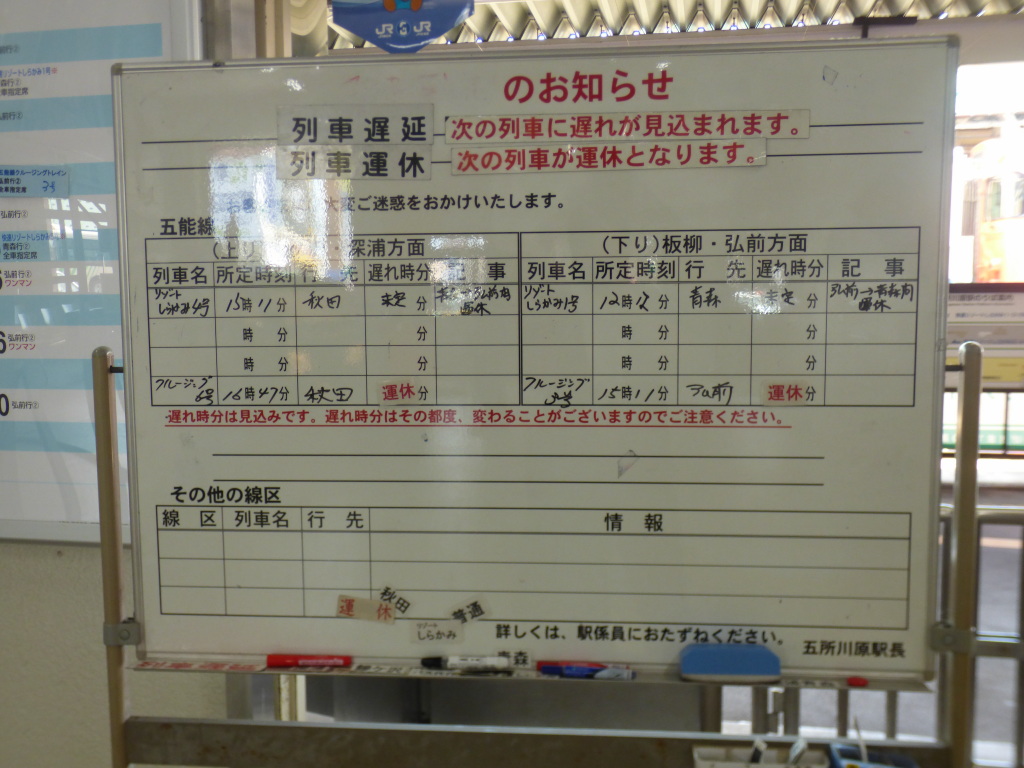 JR JR
のお知らせ
列車遅延 次の列車に遅れが見込まれます。
列車運休 次の列車が運休となります。
大変ご迷惑をおかけいたします。
五能線
(上り) ・深浦方面 (下り)板柳・弘前方面
列車名 所定時刻 行先 遅れ時分 記事 列車名 所定時刻 行先 遅れ時分 記事
リゾート リゾート
しらかみ 15時11分 秋田 未定 運休 しらかみ1号 12時 分 青森 未定 弘前→青森間 運休
時 分 分 時 分 分
時 分 分 時 分 分
クルージング 16時47分 秋田 運休分 クルージング 15時11分 弘前 運休分
遅れ時分は見込みです。遅れ時分はその都度、変わることがございますのでご注意ください。
その他の線区
線区 列車名 行先 情報
運休 秋田
リゾート しらかみ 普通
詳しくは、駅係員におたずねください。 五所川原駅長
青森
列車遅延
弘前行②
全車指定席
弘前行②
弘前行②
青森行②
全車指定席
弘前行②
ワンマン
弘前行②
ワンマン
弘前行②